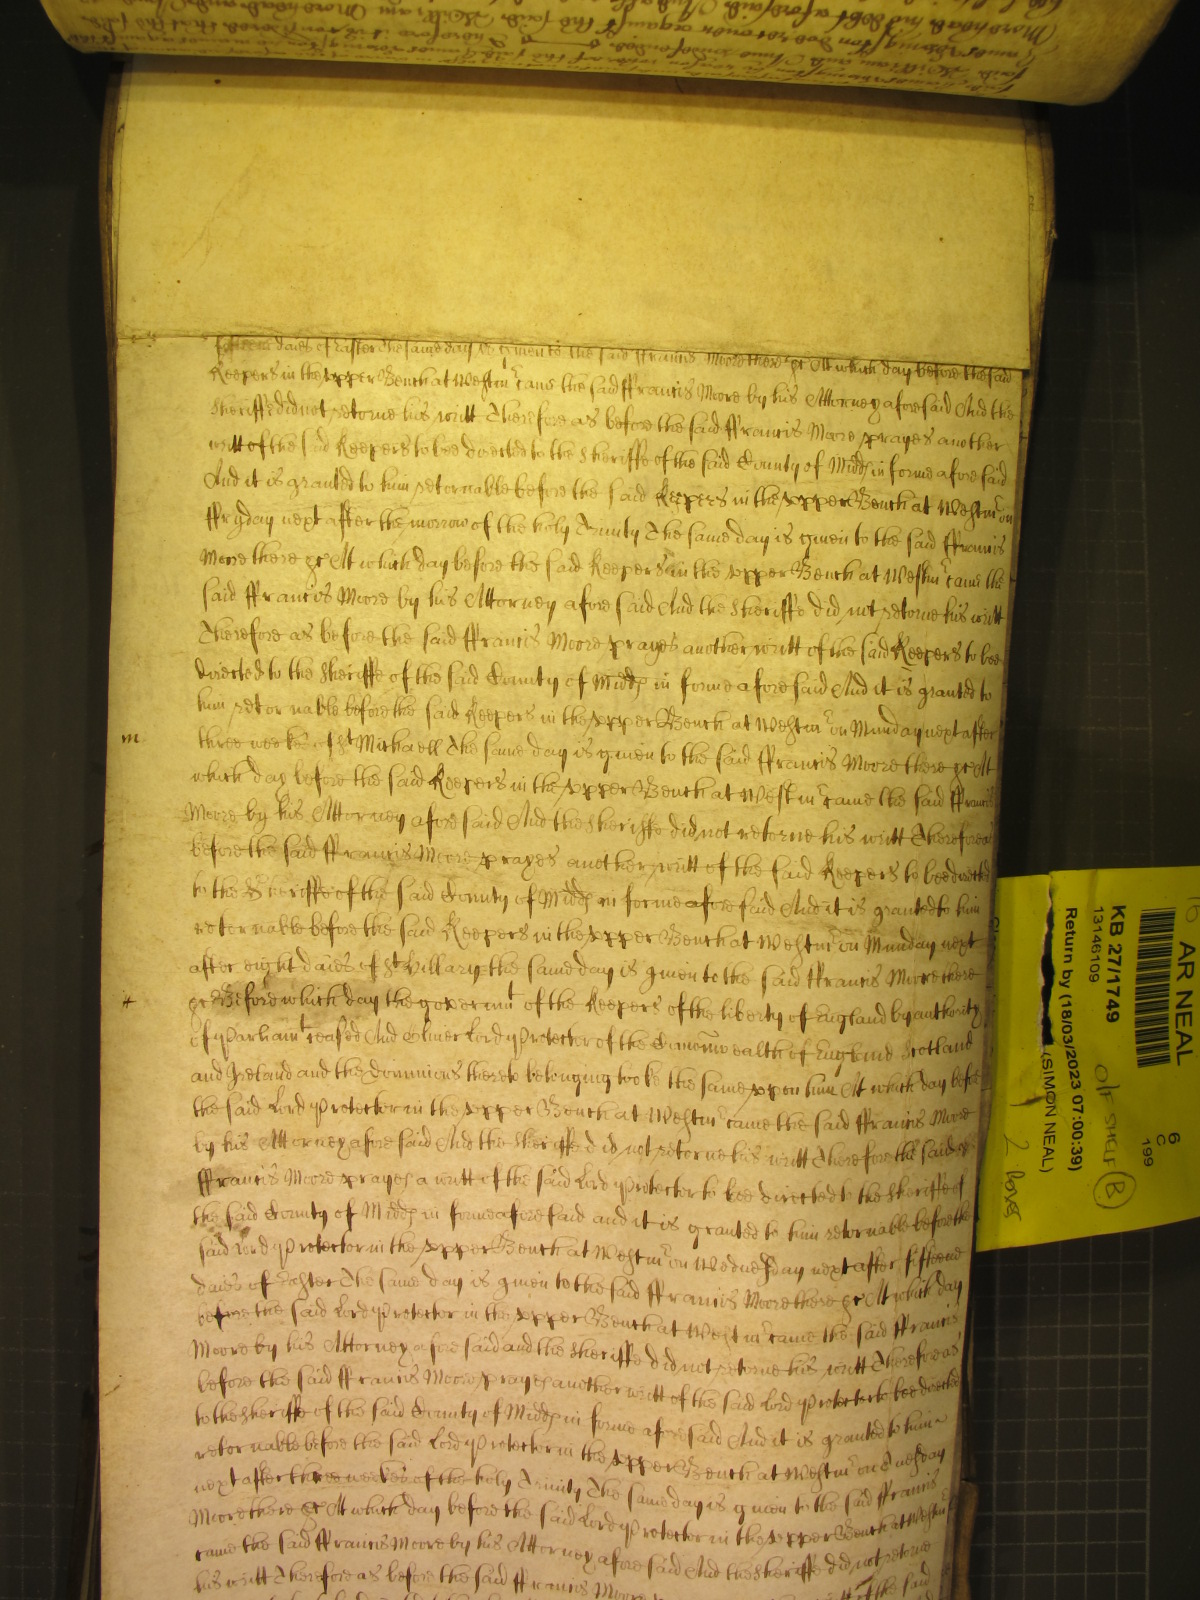 fifteene daies of Easter The same day is given to the said ffrancis Moore there &c At which day before the said
Keepers in the upper Bench at Westmr came the said ffrancis Moore by his Attorney aforesaid And the
Sheriffe did not retorne his writt Therefore as before the said ffrancis Moore prayes another
writt of the said Keepers to bee directed to the Sheriffe of the said County of Midd in forme aforesaid
And it is granted to him retornable before the said Keepers in the upper Bench at Westmr on
ffryday next after the morrow of the holy Trinity The same day is given to the said ffrancis
Moore there &c At which day before the said Keepers in the upper Bench at Westmr came the
said ffrancis Moore by his Attorney aforesaid And the Sheriffe did not retorne his writt
Therefore as before the said ffrancis Moore prayes another writt of the said Keepers to bee
directed to the Sheriffe of the said County of Midd in forme aforesaid And it is granted to
him retornable before the said Keepers in the upper Bench at Westmr on Munday next after
m three weeks of St Michaell The same day is given to the said ffrancis Moore there &c At
which day before the said Keepers in the upper Bench at Westmr came the said ffrancis
Moore by his Attorney aforesaid And the Sheriffe did not retorne his writt Therefore as
before the said ffrancis Moore prayes another writt of the said Keepers to bee directed
to the Sheriffe of the said County of Midd in forme aforesaid And it is granted to him
retornable before the said Keepers in the upper Bench at Westmr on Munday next
after eight daies of St Hillary the same day is given to the said ffrancis Moore there
&c Before which day the governmt of the Keepers of the liberty of England by authority
of Parliamt ceased And Oliver Lord Protector of the Comonwealth of England Scotland
and Ireland and the dominions thereto belonging tooke the same upon him At which day before
the said Lord Protector in the upper Bench at Westmr came the said ffrancis Moore
by his Attorney aforesaid And the Sheriffe did not retorne his writt Therefore the said
ffrancis Moore prayes a writt of the said Lord Protector to bee directed to the Sheriffe of
the said County of Midd in forme aforesaid and it is granted to him retornable before the
said Lord Protector in the upper Bench at Westmr on Wednesday next after fifteene
daies of Easter The same day is given to the said ffrancis Moore there &c At which day
before the said Lord Protector in the upper Bench at Westmr came the said ffrancis
Moore by his Attorney aforesaid and the Sheriffe did not retorne his writt Therefore as
before the said ffrancis Moore prayes another writt of the said Lord Protector to bee directed
to the Sheriffe of the said County of Midd in forme aforesaid And it is granted to him
retornable before the said Lord Protector in the upper Bench at Westmr on Tuesday
next after three weekes of the holy Trinity The same day is given to the said ffrancis
Moore there &c At which day before the said Lord Protector in the upper Bench at Westmr
came the said ffrancis Moore by his Attorney aforesaid And the Sheriffe did not retorne
his writt Therefore as before the said ffrancis Moore of the said
AR NEAL
6
C
199
KB 27/1749
13146109
Return by (18/03/2023 07:00:39)
(SIMON NEAL)
O/F SHELF B
2 boxes